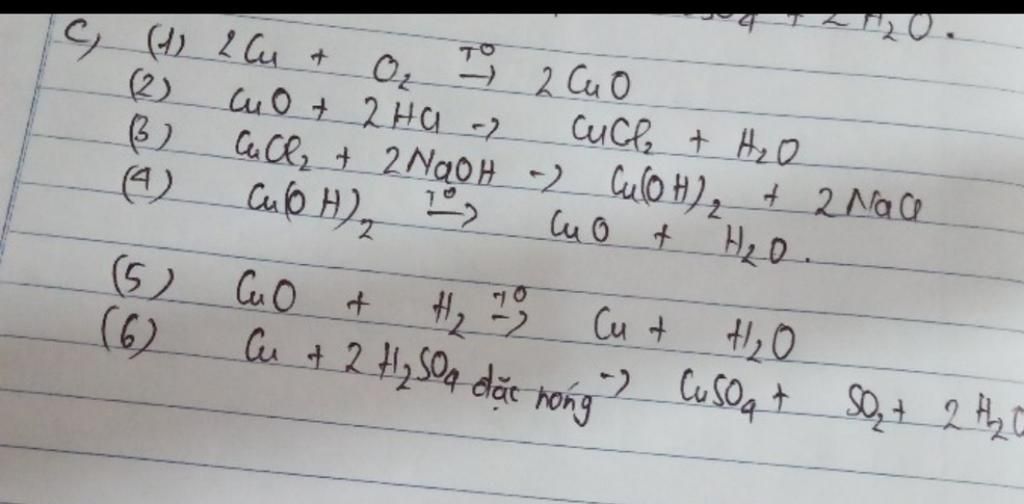 + 2 H₂O.
C, (1) 2Cu + O₂ →(T⁰) 2CuO
(2) CuO + 2HCl → CuCl₂ + H₂O
(3) CuCl₂ + 2NaOH → Cu(OH)₂ + 2NaCl
(4) Cu(OH)₂ →(T⁰) CuO + H₂O.
(5) CuO + H₂ →(T⁰) Cu + H₂O
(6) Cu + 2H₂SO₄ đặc nóng → CuSO₄ + SO₂ + 2H₂O